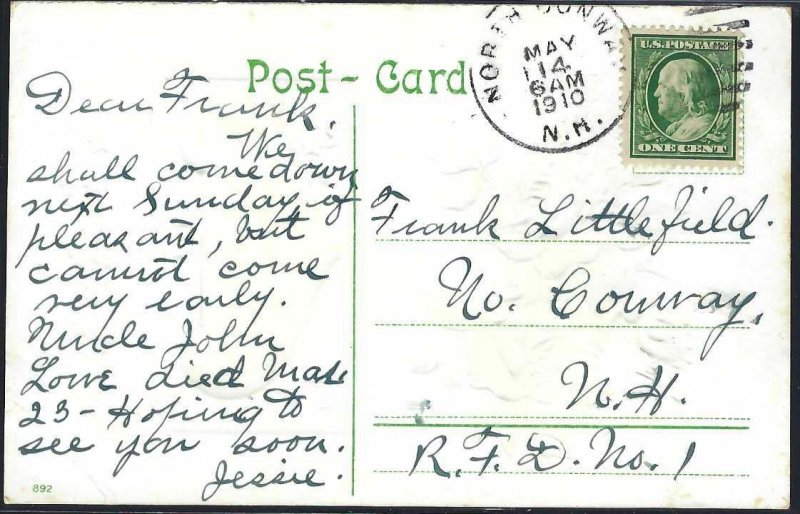 Post-Card
NORTH CONWAY
MAY
14
6AM
1910
N.H.
U.S. POSTAGE
ONE CENT
Dear Frank,
We
shall come down
next Sunday if
pleasant, but
cannot come
very early.
Uncle John
Lowe died
23 - Hoping to
see you soon.
Jessie.
892
Frank Littlefield.
No. Conway,
N.H.
R.F.D. No. 1